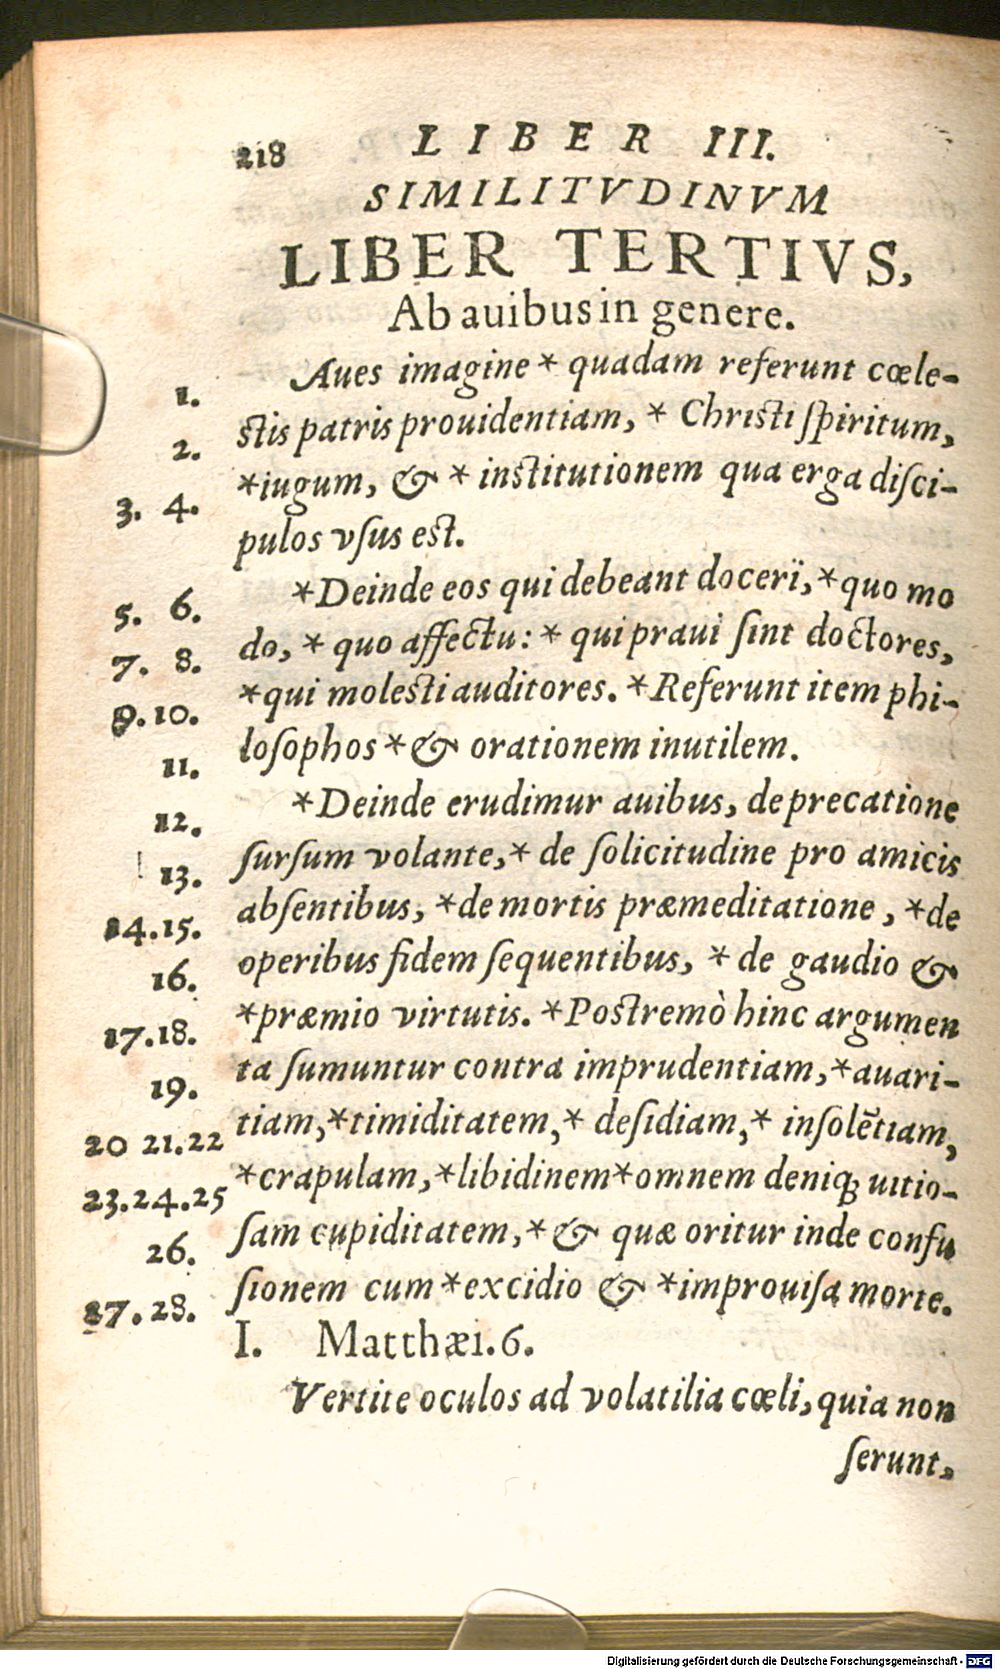 218 LIBER III.
SIMILITVDINVM
LIBER TERTIVS,
Ab auibus in genere.
1. Aues imagine * quadam referunt cœle-
2. stis patris prouidentiam, * Christi spiritum,
3. 4. *iugum, & * institutionem qua erga disci-
pulos vsus est.
5. 6. *Deinde eos qui debeant docerï, *quo mo
7. 8. do, * quo affectu: * qui praui sint doctores,
9. 10. *qui molesti auditores. *Referunt item phi-
11. losophos *& orationem inutilem.
12. *Deinde erudimur auibus, de precatione
13. sursum volante, * de solicitudine pro amicis
14. 15. absentibus, *de mortis præmeditatione, *de
16. operibus fidem sequentibus, * de gaudio &
17. 18. *præmio virtutis. *Postremò hinc argumen
19. ta sumuntur contra imprudentiam, *auari-
20 21. 22 tiam, *timiditatem, * desidiam, * insolẽtiam,
23. 24. 25 *crapulam, *libidinem *omnem deniq; uitio-
26. sam cupiditatem, * & quæ oritur inde confu
27. 28. sionem cum *excidio & *improuisa morte.
I. Matthæi. 6.
Vertite oculos ad volatilia cœli, quia non
serunt,
Digitalisierung gefördert durch die Deutsche Forschungsgemeinschaft - DFG